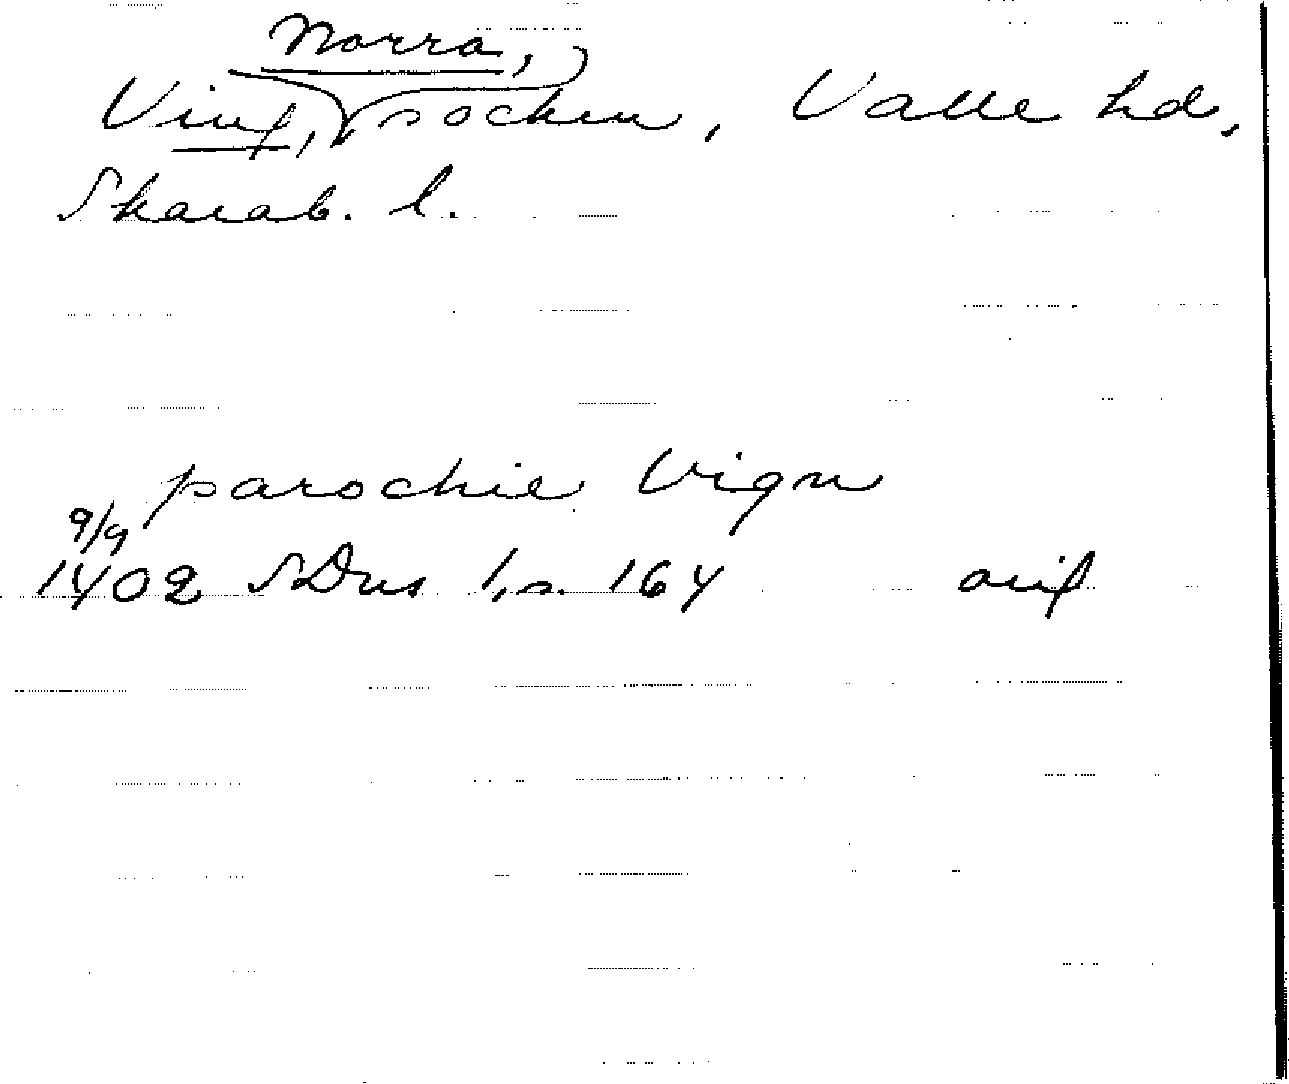 Norra,
Ving, socken, Valle hd,
Skarab. l.
parochie Vign
9/9
1402 SDns 1, s. 164 orig